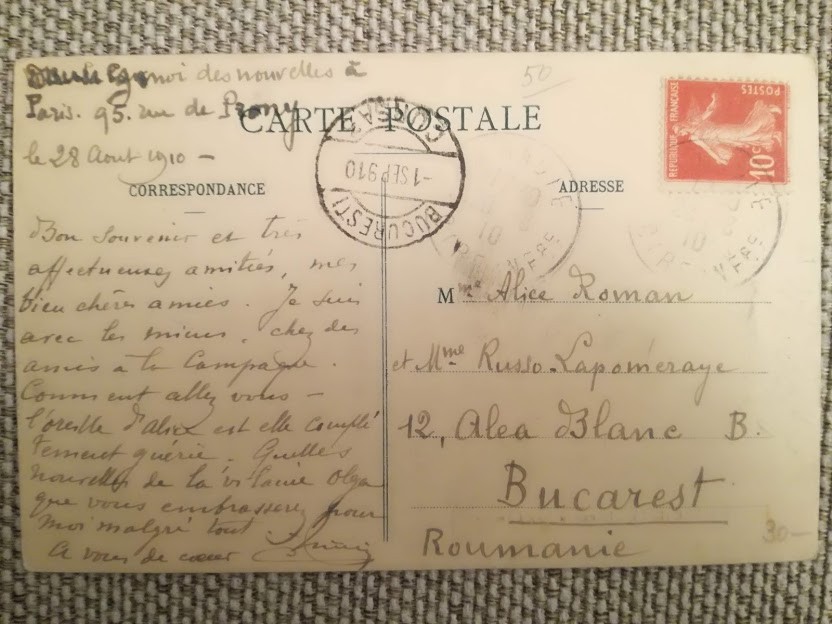 moi des nouvelles à
Paris. 95. rue de Prony
le 28 Aout 1910 -
50
CARTE POSTALE
CORRESPONDANCE
ADRESSE
BUCURESTI
-1 SEP 910
REPUBLIQUE FRANÇAISE
POSTES
10c
Bon souvenir et très
affectueuses amitiés, mes
bien chères amies. Je suis
avec les miens, chez des
amis à la Campagne.
Comment allez vous -
l'oreille d'alice est elle complè
tement guérie. Quelles
nouvelles de la vilaine Olga
que vous embrasserez pour
moi malgré tout.
A vous de cœur
Mme Alice Roman
et Mme Russo-Lapomeraye
12, Alea Blanc B.
Bucarest
Roumanie
30-